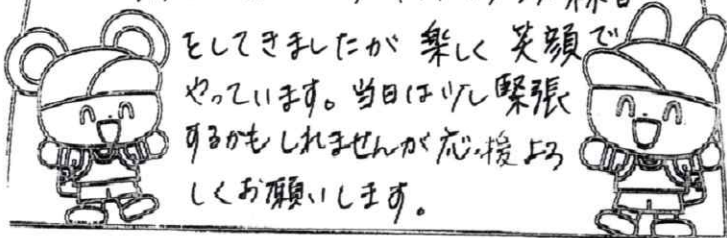 をしてきましたが 楽しく 笑顔で
やっています。当日は少し緊張
するかもしれませんが応援よろ
しくお願いします。